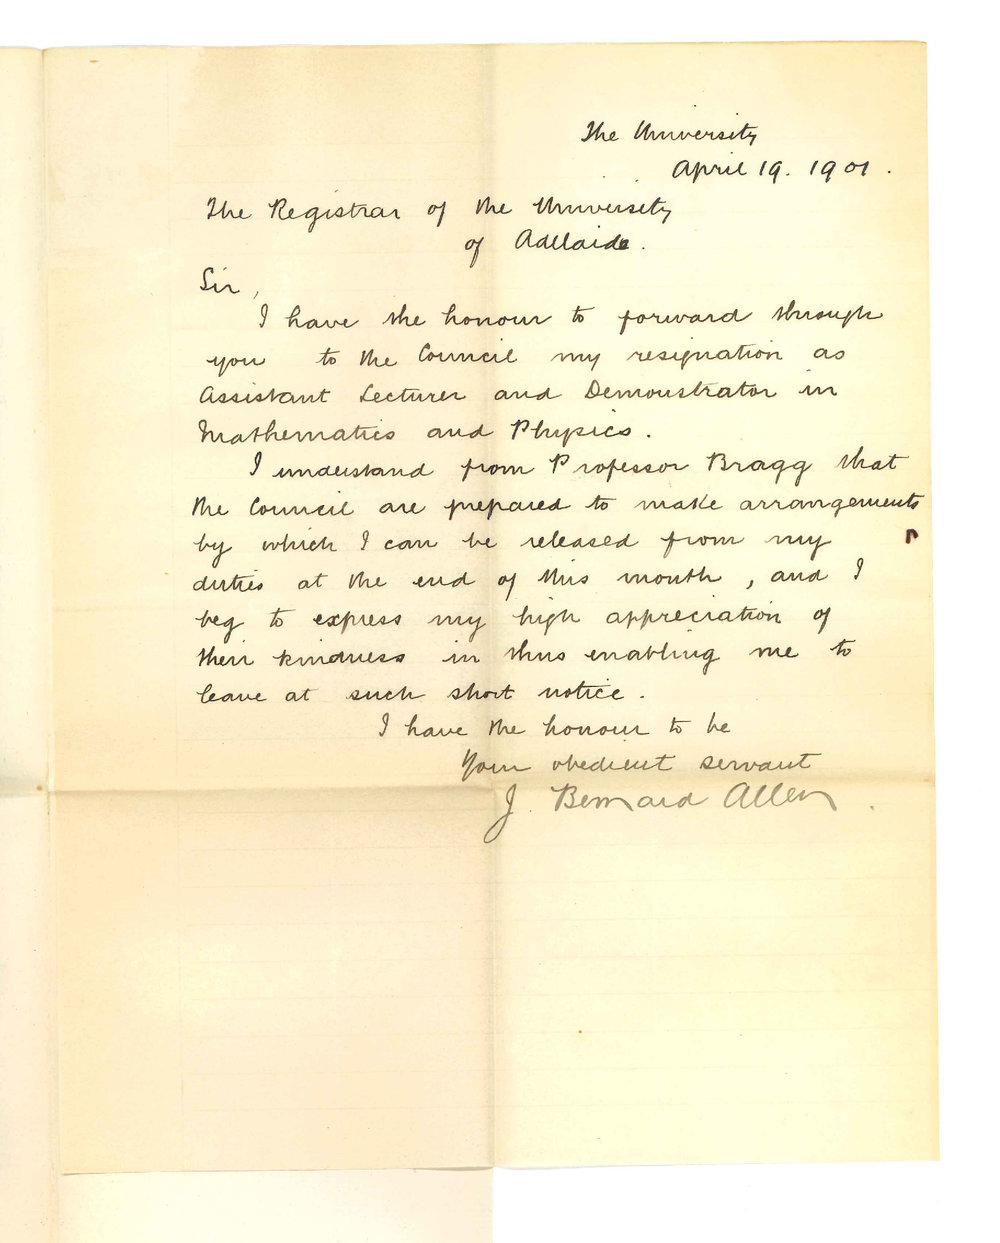 The University
April 19. 1901.
The Registrar of the University
of Adelaide.
Sir,
I have the honour to forward through
you to the Council my resignation as
Assistant Lecturer and Demonstrator in
Mathematics and Physics.
I understand from Professor Bragg that
the Council are prepared to make arrangements
by which I can be released from my
duties at the end of this month, and I
beg to express my high appreciation of
their kindness in thus enabling me to
leave at such short notice.
I have the honour to be
Your obedient servant
J. Bernard Allen.